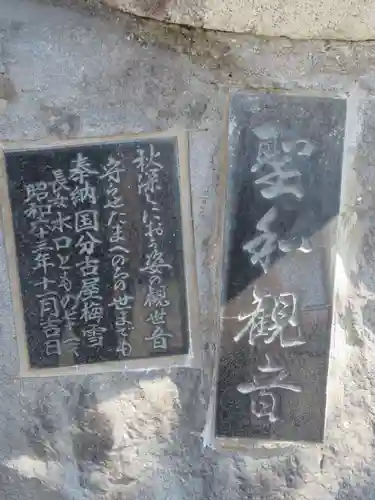 聖和観音
秋深しにおう姿の観世音
守らせたまへのちの世までも
奉納国分古屋梅雪
長女水口とも
昭和六十三年十一月吉日